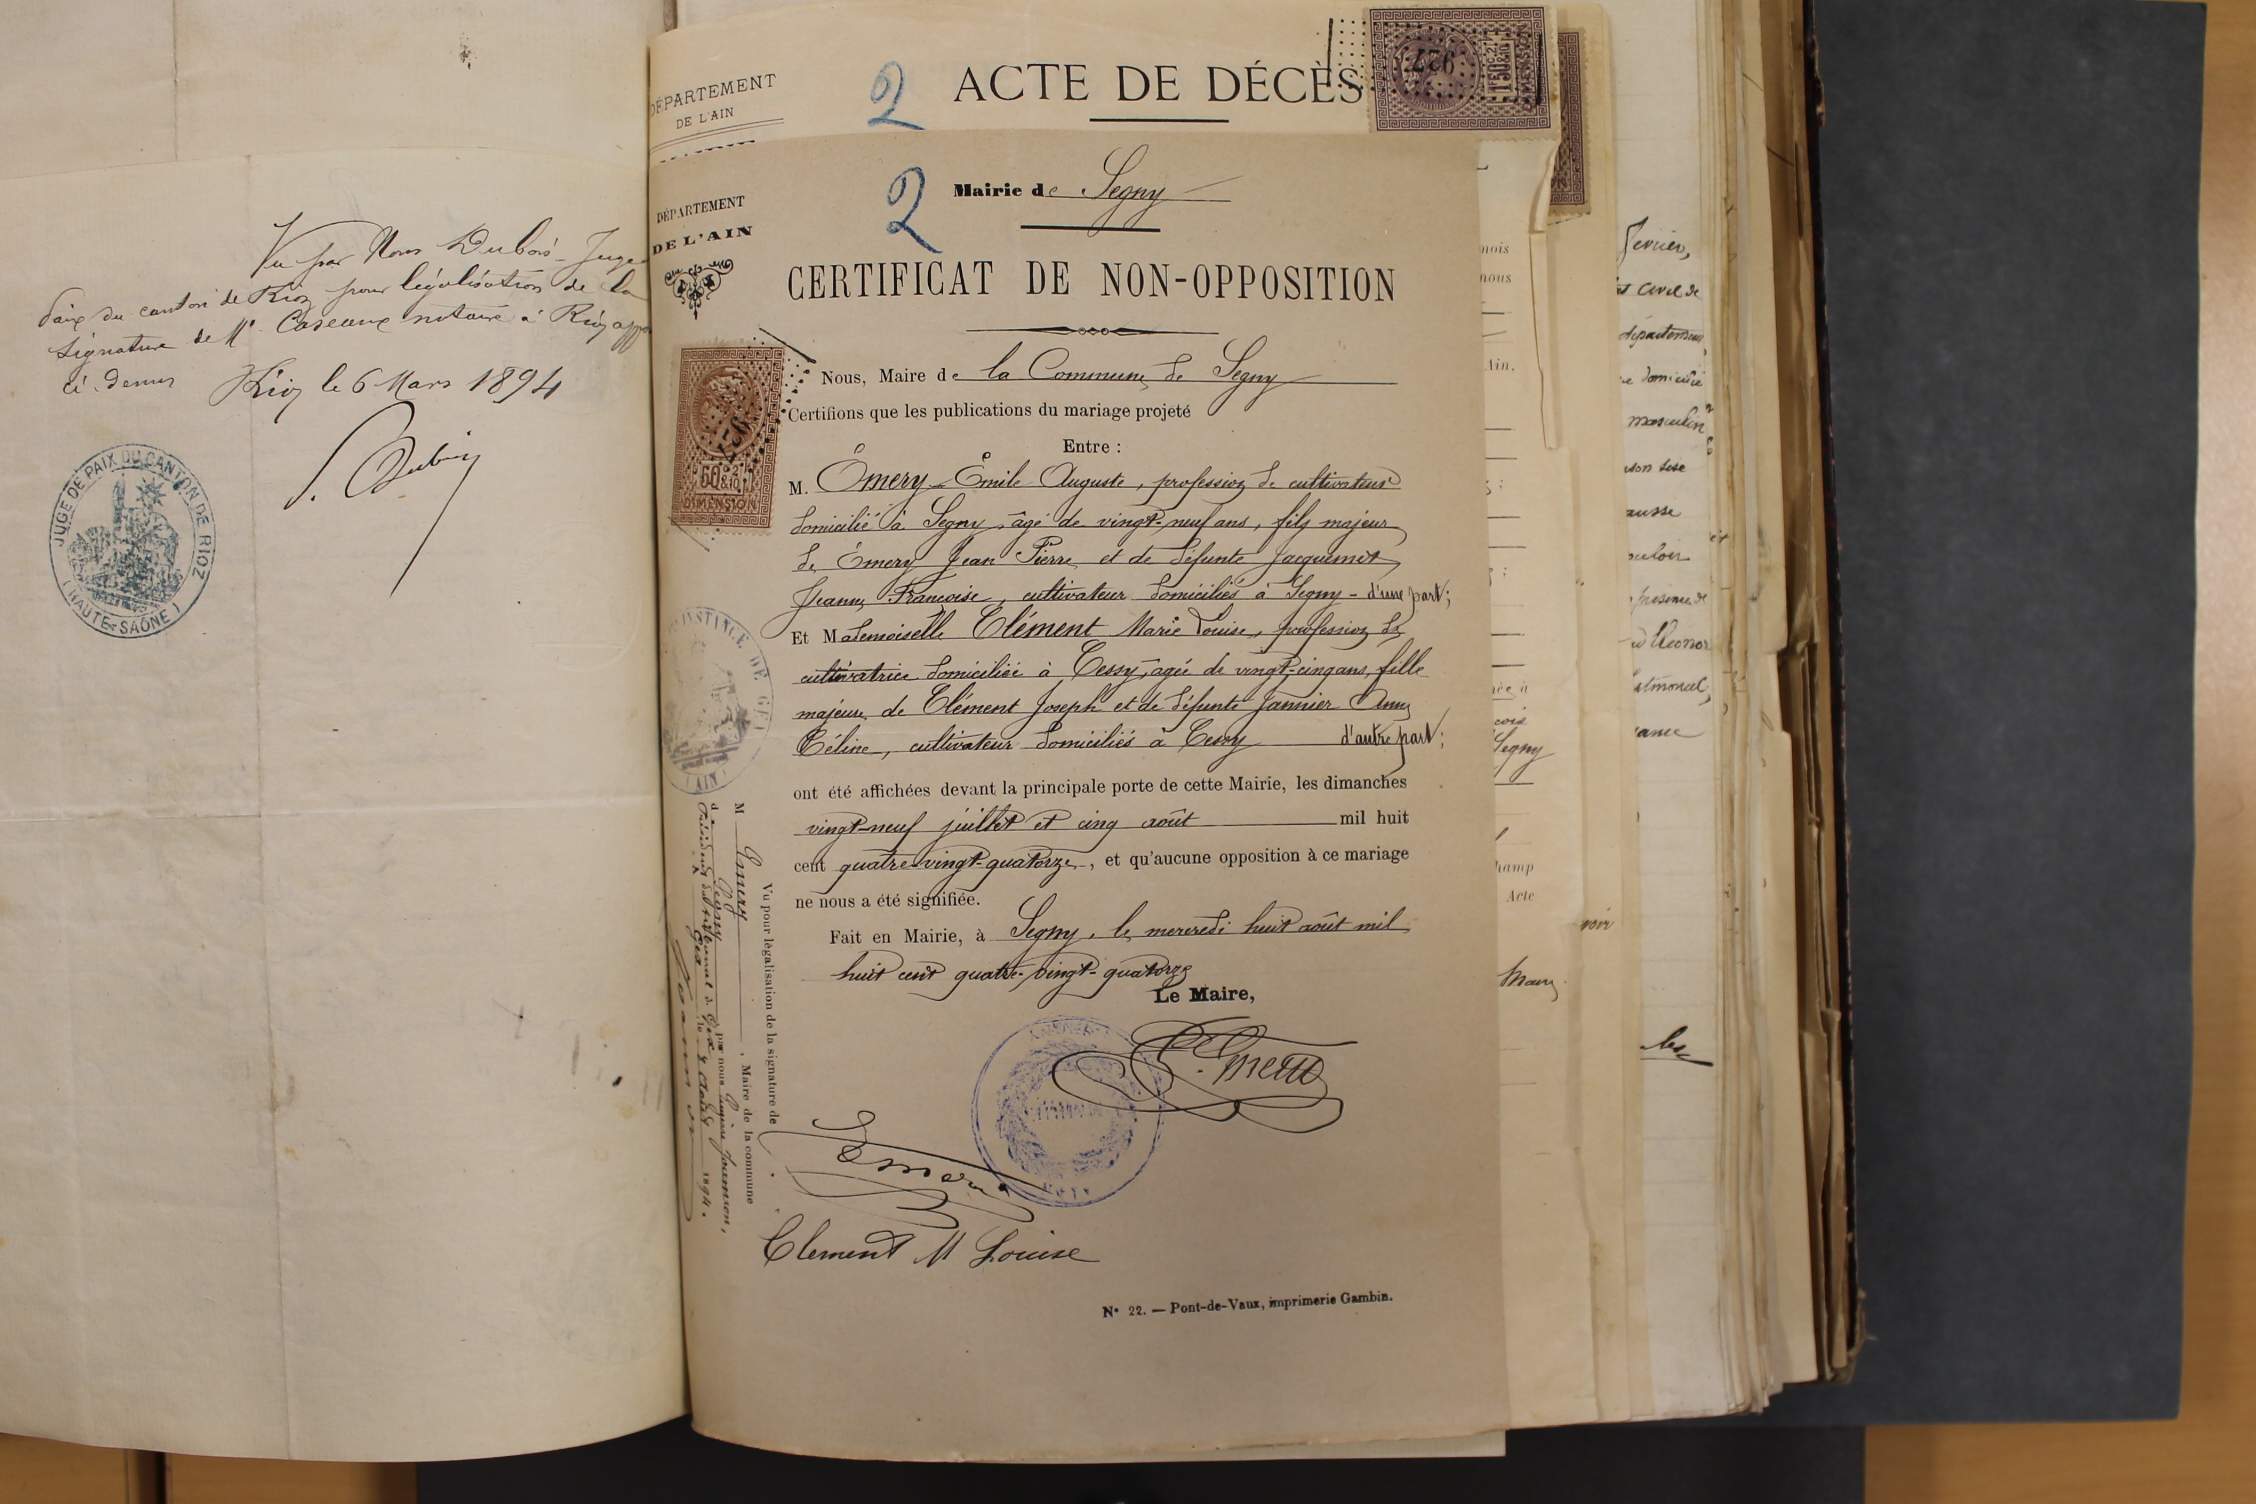 Vu par Nous Dubois Juge
Paix du canton de Rioz pour législation de la
signature de Me Caseaux notaire à Rioz app
ci-dessus
Rioz le 6 Mars 1894
JUGE DE PAIX DU CANTON DE RIOZ
(HAUTE-SAÔNE)
DÉPARTEMENT
DE L'AIN
2
ACTE DE DÉCÈS
927
DIMENSION
DÉPARTEMENT
DE L'AIN
2
Mairie de Segny
CERTIFICAT DE NON-OPPOSITION
927
60c 2/10
DIMENSION
Nous, Maire de la Commune de Segny
Certifions que les publications du mariage projeté
Entre :
M. Émery Émile Auguste, profession de cultivateur
domicilié à Segny, âgé de vingt-neuf ans, fils majeur
de Émery Jean Pierre et de défunte Jacquemet
Jeanne Françoise, cultivateur domiciliés à Segny - d'une part;
Et Mademoiselle Clément Marie Louise, profession de
cultivatrice domiciliée à Cessy, agée de vingt-cinq ans, fille
majeure de Clément Joseph et de défunte Jannier Anne
Céline, cultivateur domiciliés à Cessy d'autre part;
ont été affichées devant la principale porte de cette Mairie, les dimanches
vingt-neuf juillet et cinq août mil huit
cent quatre-vingt-quatorze, et qu'aucune opposition à ce mariage
ne nous a été signifiée.
Fait en Mairie, à Segny, le mercredi huit août mil
huit cent quatre-vingt-quatorze
Le Maire,
E. Emery
Emery
Clement M Louise
N° 22. — Pont-de-Vaux, imprimerie Gambin.
INSTANCE DE GEX
(AIN)
Vu pour légalisation de la signature de
M Emery, Maire de la commune
de Segny par nous Journon,
Président du tribunal de Gex
A Gex le 9 Août 1894.
mois
nous
Ain.
Segny
Acte
voir
février,
état civil de
département
domicilié
masculin
présence de
Léonor